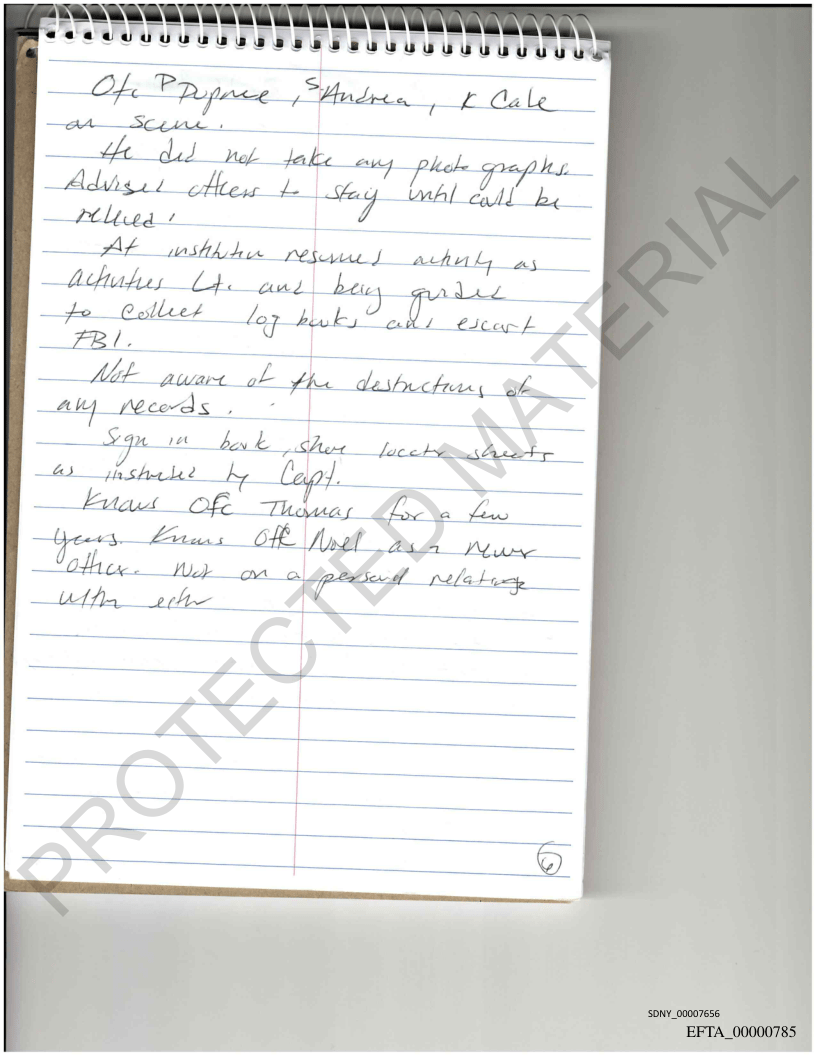 Ofc P Dupree, S Andrea, K Cale
on scene.
He did not take any photographs.
Advised others to stay until could be
relieved.
At institution resumed activity as
activities Lt. and being guided
to collect log books and escort
FBI.
Not aware of the destructions of
any records.
Sign in book, show locator sheets
as instructed by Capt.
Knows Ofc Thomas for a few
years. Knows Ofc Noel as a newer
other. Not on a personal relations
with
6
PROTECTED MATERIAL
SDNY_00007656
EFTA_00000785